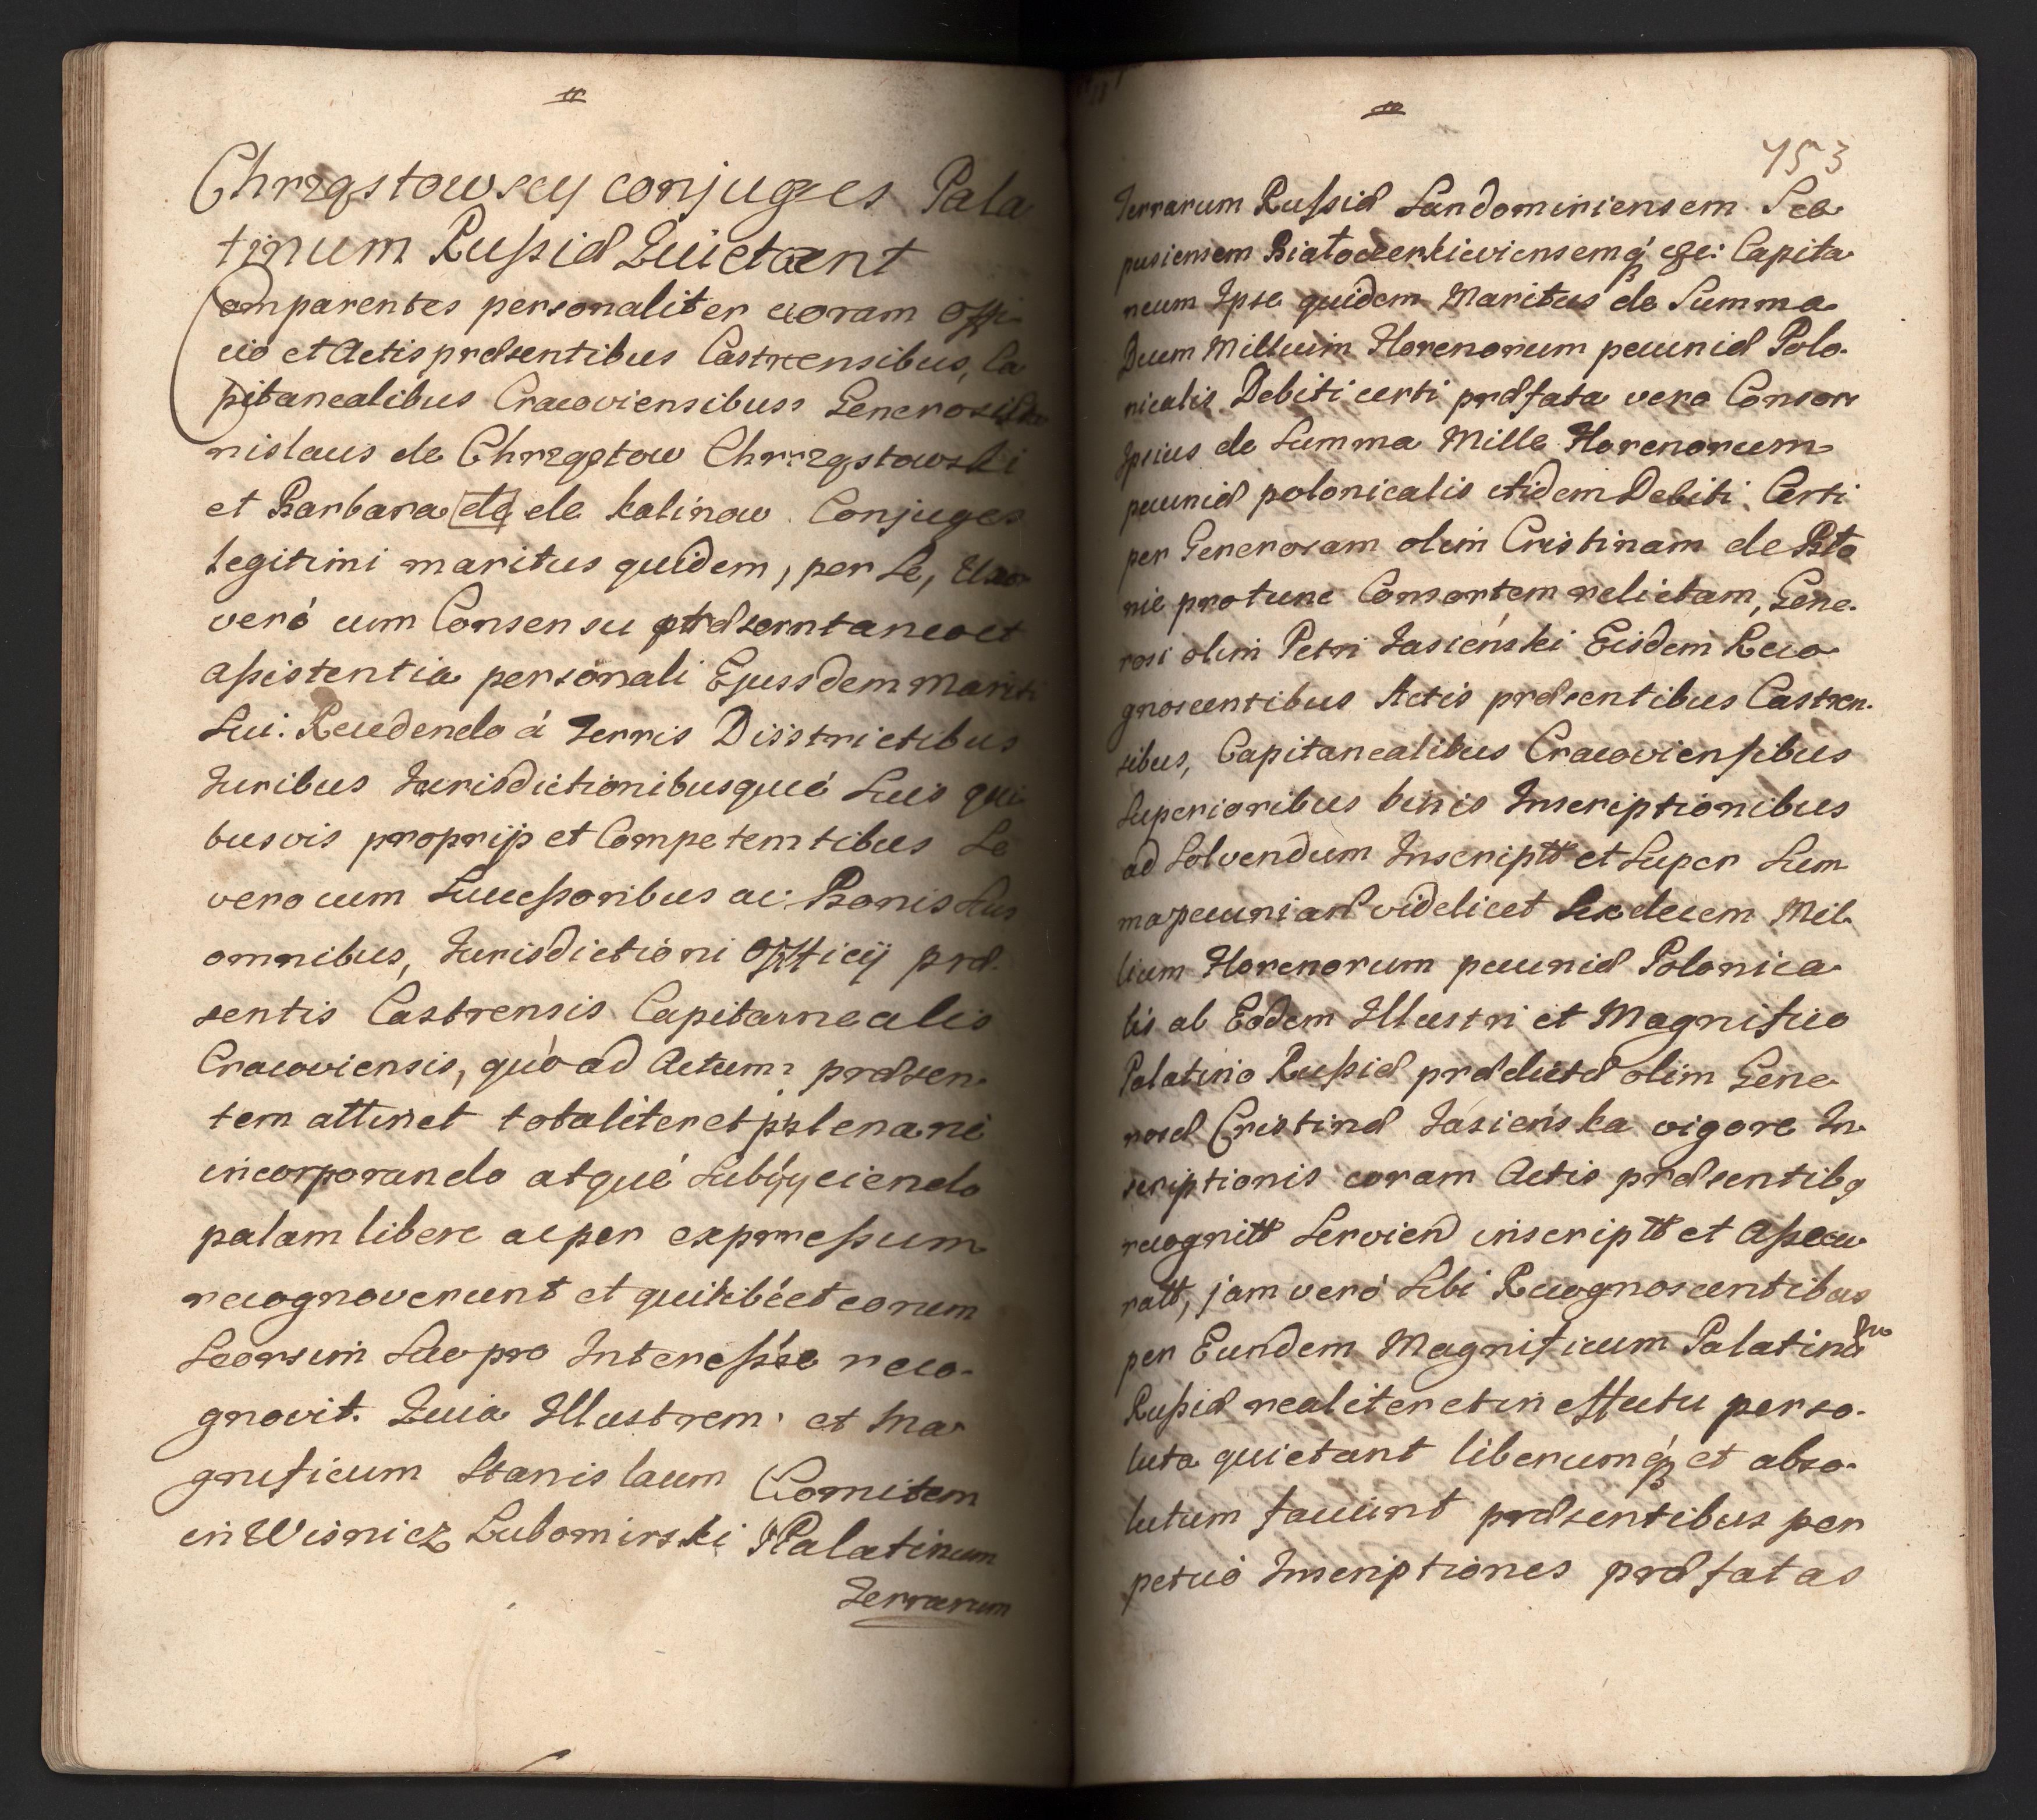 Chrząstowscy conjuges Pala
tinum Russiæ Quietant
Comparentes personaliter coram Offi-
cio et Actis præsentibus Castrensibus, Ca
pitanealibus Cracoviensibuss Generosi Sta
nislaus de Chrząstow Chrząstowski
et Barbara de de Kalinow Conjuges
legitimi maritus quidem, per se, Uxor
veró cum Consensu præsentaneo et
assistentia personali Ejussdem Mariti
Sui. Recedendo á Terris Disstrictibus
Juribus Jurisdictionibusqué Suis qui
busvis proprijs et Competemtibus Se
vero cum Successoribus ac Bonis Suis
omnibus, Jurisdictioni Officij præ-
sentis Castrensis Capitanealis
Cracoviensis, quo ad Actum præsen-
tem attinet totaliter et plenarié
incorporando atqué Subijciendo
palam libere ac per expressum
recognoverunt et quilibéet eorum
Seorsim Suo pro Interésse reco-
gnovit. Quia Illustrem et Ma-
gnificum Stanislaum Comitem
in Wisnicz Lubomirski Palatinum
Terrarum
753
Terrarum Russiæ Sandomiriensem Sce-
pusiensem Białocerkieviensemq́ꝫ etc: Capita-
neum Ipse quidem Maritus de Summa
Duum Millium Florenorum pecuniæ Polo-
nicalis Debiti certi præfata vero Consors
Ipsius de Summa Mille Florenorum
pecuniæ polonicalis itidem Debiti Certi
per Generosam olim Cristinam de
nie pro tunc Consortem relictam, Gene-
rosi olim Petri Jasieński Eisdem Reco-
gnoscentibus Actis præsentibus Castren-
sibus, Capitanealibus Cracoviensibus
Superioribus binis Inscriptionibus
ad Solvendum Inscriptt et Super Sum-
ma pecuniaræ videlicet Sexdecem Mil-
lium Florenorum pecuniæ Polonica-
lis ab Eodem Illustri et Magnifico
Palatino Russiæ prædictæ olim Gene-
rosæ Cristinæ Jasieńska vigore In-
scriptionis coram Actis præsentibꝫ
recognitt Serviend inscriptt et Assecu-
ratt, jam veró Sibi Recognoscentibus
per Eundem Magnificum Palatinũ
Russiæ realiter et in effectu perso-
luta quietant liberumq́ꝫ et abso-
lutum faciunt præsentibus per
petuó Inscriptiones præfatas